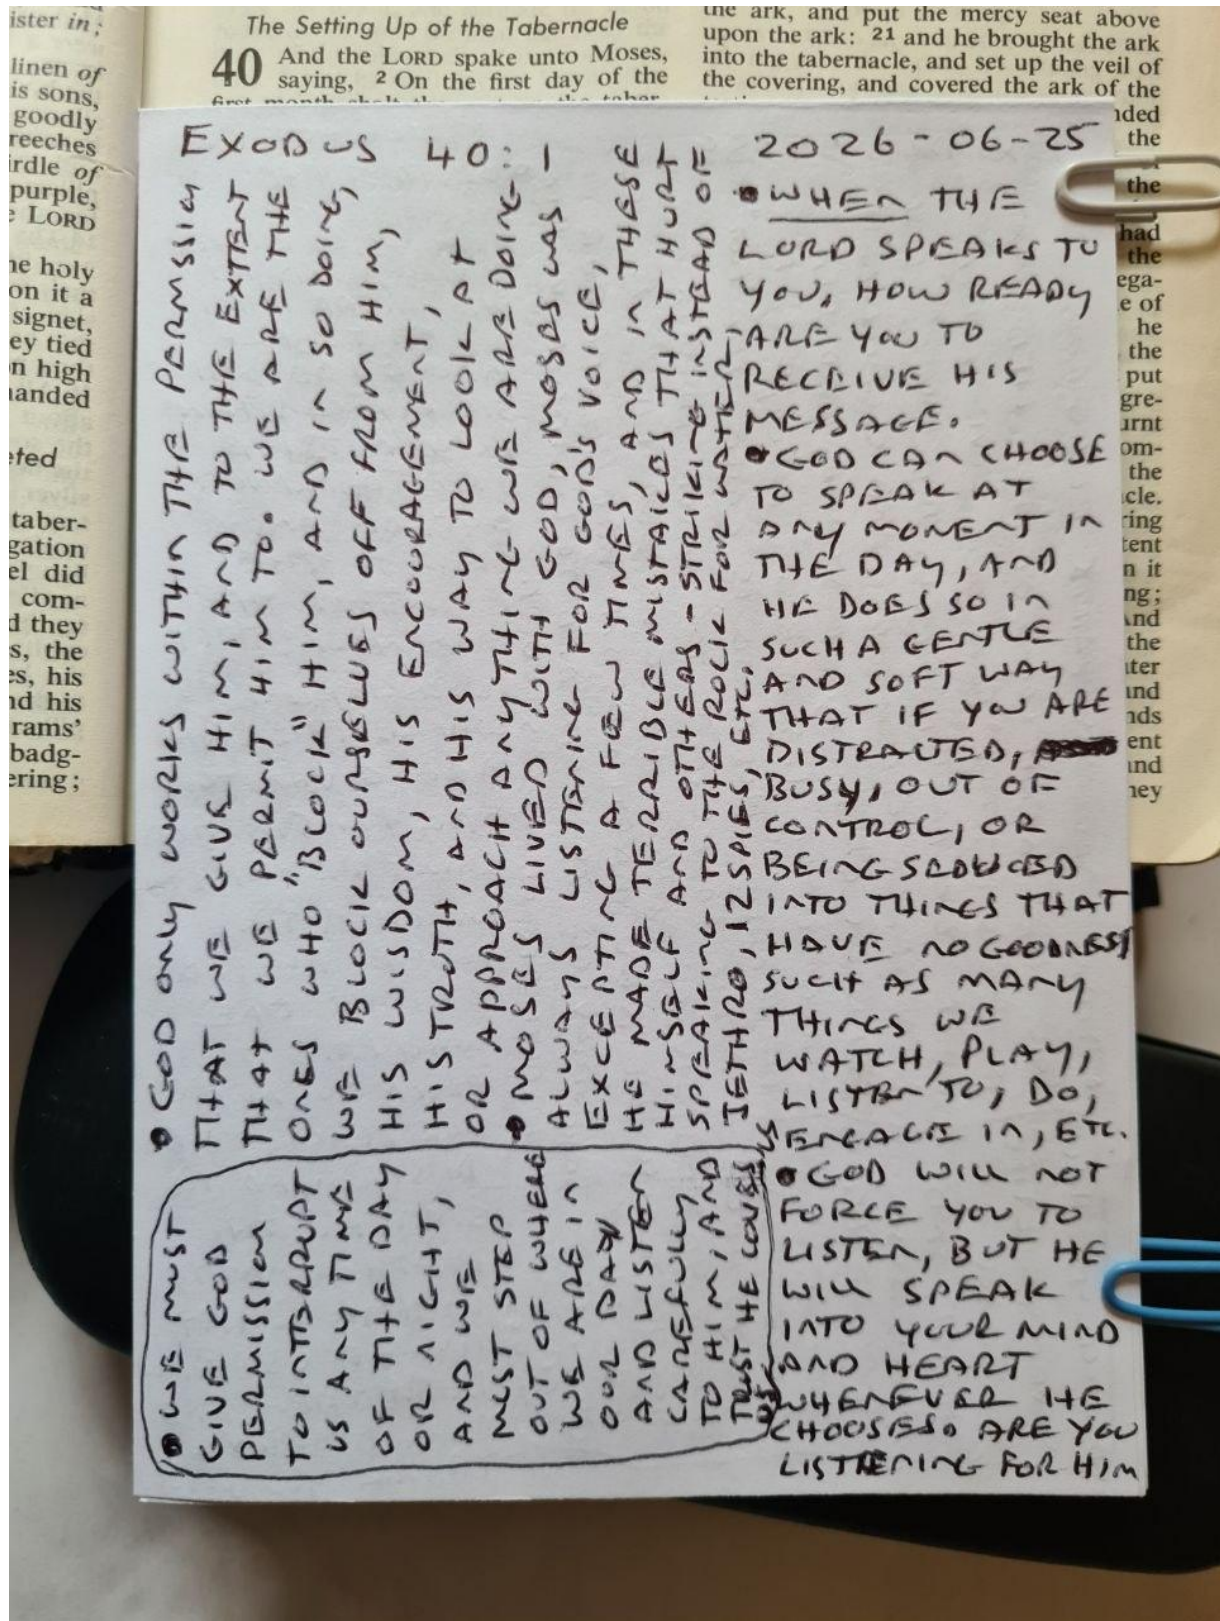 ister in;
linen of
is sons,
goodly
reeches
irdle of
purple,
LORD
he holy
on it a
signet,
ey tied
n high
anded
eted
taber-
gation
el did
com-
d they
s, the
es, his
nd his
rams'
badg-
ering;
The Setting Up of the Tabernacle
40 And the LORD spake unto Moses,
saying, 2 On the first day of the
the ark, and put the mercy seat above
upon the ark: 21 and he brought the ark
into the tabernacle, and set up the veil of
the covering, and covered the ark of the
nded
the
the
had
the
ega-
e of
he
the
put
gre-
urnt
om-
the
cle.
ring
tent
n it
ng;
And
the
ater
and
nds
ent
and
hey
EXODUS 40:1
2026-06-25
• WHEN THE
LORD SPEAKS TO
YOU, HOW READY
ARE YOU TO
RECEIVE HIS
MESSAGE.
• GOD CAN CHOOSE
TO SPEAK AT
ANY MOMENT IN
THE DAY, AND
HE DOES SO IN
SUCH A GENTLE
AND SOFT WAY
THAT IF YOU ARE
DISTRACTED,
BUSY, OUT OF
CONTROL, OR
BEING SEDUCED
INTO THINGS THAT
HAVE NO GOODNESS
SUCH AS MANY
THINGS WE
WATCH, PLAY,
LISTEN TO, DO,
ENGAGE IN, ETC.
• GOD WILL NOT
FORCE YOU TO
LISTEN, BUT HE
WILL SPEAK
INTO YOUR MIND
AND HEART
WHENEVER HE
CHOOSES. ARE YOU
LISTENING FOR HIM
• GOD ONLY WORKS WITHIN THE PERMISSION
THAT WE GIVE HIM, AND TO THE EXTENT
THAT WE "PERMIT HIM TO. WE ARE THE
ONES WHO "BLOCK" HIM, AND IN SO DOING,
WE BLOCK OURSELVES OFF FROM HIM,
HIS WISDOM, HIS ENCOURAGEMENT,
HIS TRUTH, AND HIS WAY TO LOOK AT
OR APPROACH ANYTHING WE ARE DOING.
• MOSES LIVED WITH GOD, MOSES WAS
ALWAYS LISTENING FOR GOD'S VOICE,
EXCEPTING A FEW TIMES, AND IN THESE
HE MADE TERRIBLE MISTAKES THAT HURT
HIMSELF AND OTHERS - STRIKING INSTEAD OF
SPEAKING TO THE ROCK FOR WATER,
JETHRO, 12 SPIES, ETC.
• WE MUST
GIVE GOD
PERMISSION
TO INTERRUPT
US ANY TIME
OF THE DAY
OR NIGHT,
AND WE
MUST STEP
OUT OF WHERE
WE ARE IN
OUR DAY
AND LISTEN
CAREFULLY
TO HIM, AND
TRUST HE LOVES
US.